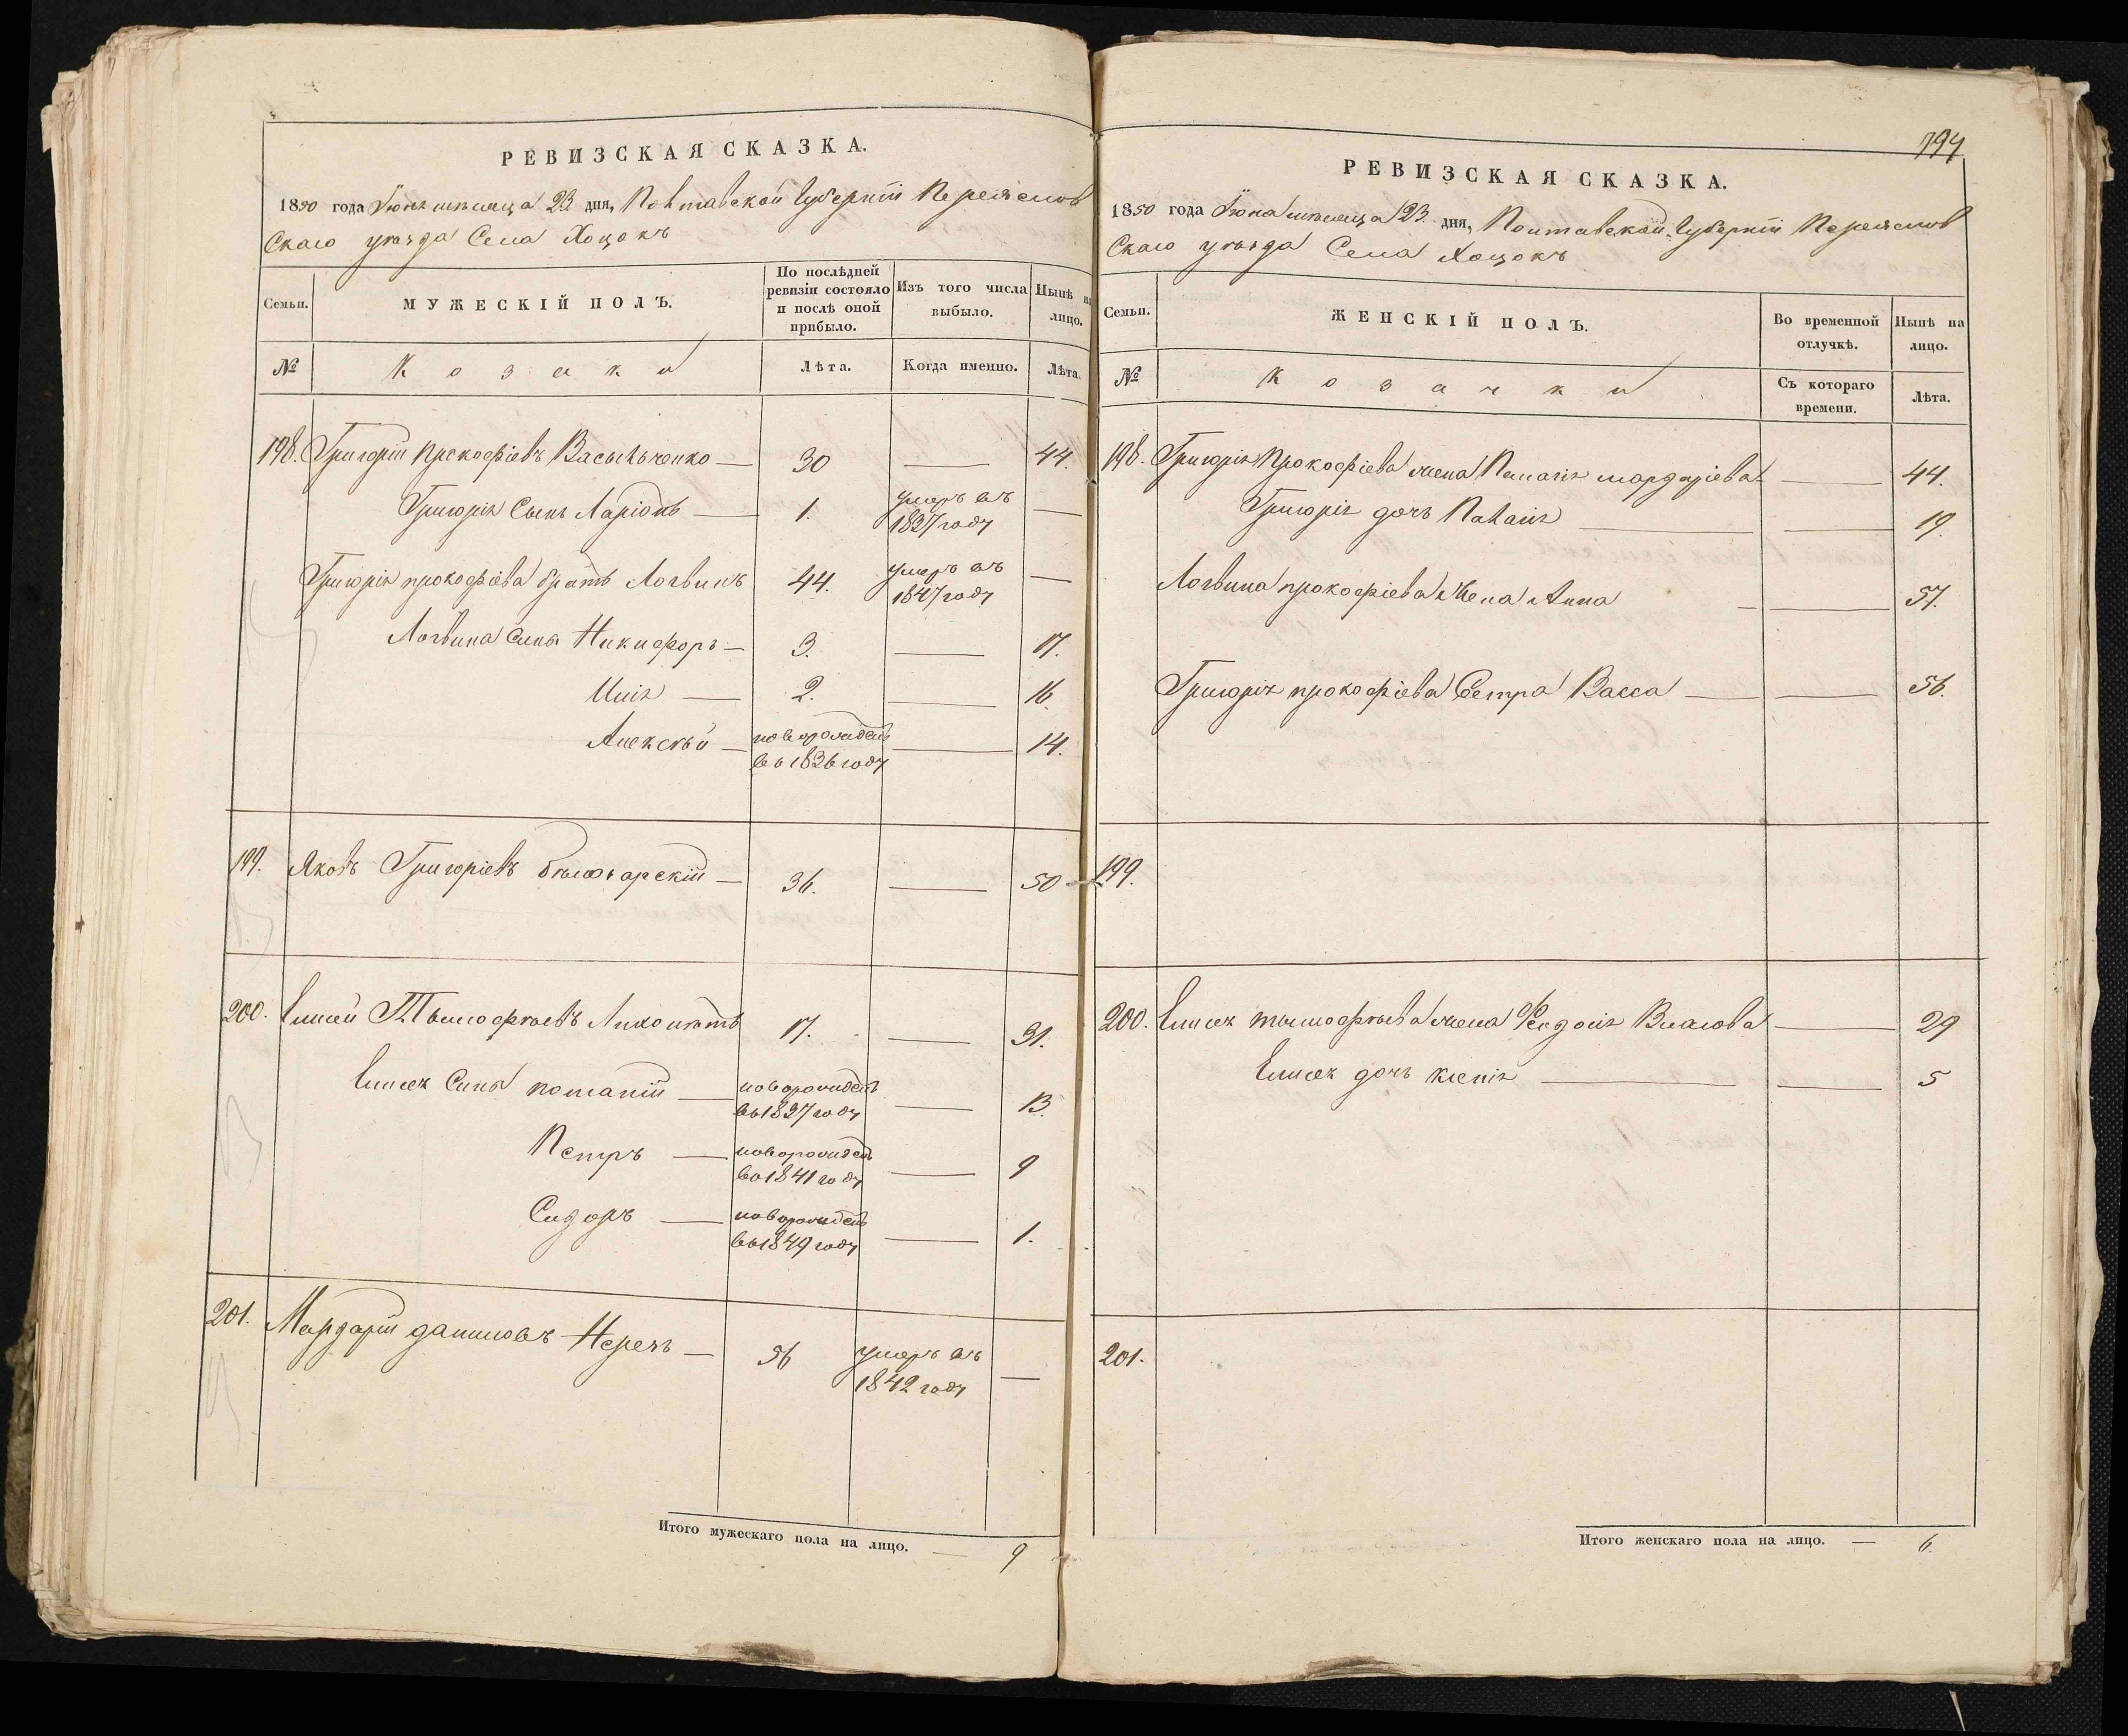 РЕВИЗСКАЯ СКАЗКА.
1850 года Іюня мѣсяца 23 дня, Полтавской Губерніи Переяслов
Скаго уѣзда Села Хоцокъ
Семьи.
МУЖЕСКІЙ ПОЛЪ.
По послѣдней ревизіи состояло и послѣ оной прибыло.
Изъ того числа выбыло.
Нынѣ на лицо.
№
Козаки
Лѣта.
Когда именно.
Лѣта.
198. Григорій Прокофіевъ Васильченко — 30 — 44.
Григорія Сынъ Ларіонъ — 1. умеръ въ 1837 году —
Григорія прокофіева братъ Логвинъ 44. умеръ въ 1847 году —
Логвина Сыны Никифоръ — 3. — 17.
Илія — 2. — 16.
Алексѣй — новорожденъ въ 1836 году — 14.
199. Яковъ Григоріевъ — 36. — 50
200. Елисей Тымофѣевъ 17. — 31.
Елисея Сыны потапій — новорожденъ въ 1837 году — 13.
Петръ — новорожденъ въ 1841 году — 9
Сидоръ — новорожденъ въ 1849 году — 1.
201. Мардарій даниловъ — 56 умеръ въ 1842 году —
Итого мужескаго пола на лицо. — 9
794
РЕВИЗСКАЯ СКАЗКА.
1850 года Іюня мѣсяца 23 дня, Полтавской Губерніи Переяслов
Скаго уѣзда Села Хоцокъ
Семьи.
ЖЕНСКІЙ ПОЛЪ.
Во временной отлучкѣ.
Нынѣ на лицо.
№
Козачки
Съ котораго времени.
Лѣта.
198. Григорія Прокофіева жена Палагія мардаріева — 44.
Григорія дочь — 19.
Логвина прокофіева Жена Анна — 57.
Григорія прокофіева Сестра Васса — 56.
199.
200. Елисея тымофѣева жена Феодосія Власова — 29
Елисея дочь — 5
201.
Итого женскаго пола на лицо. — 6.